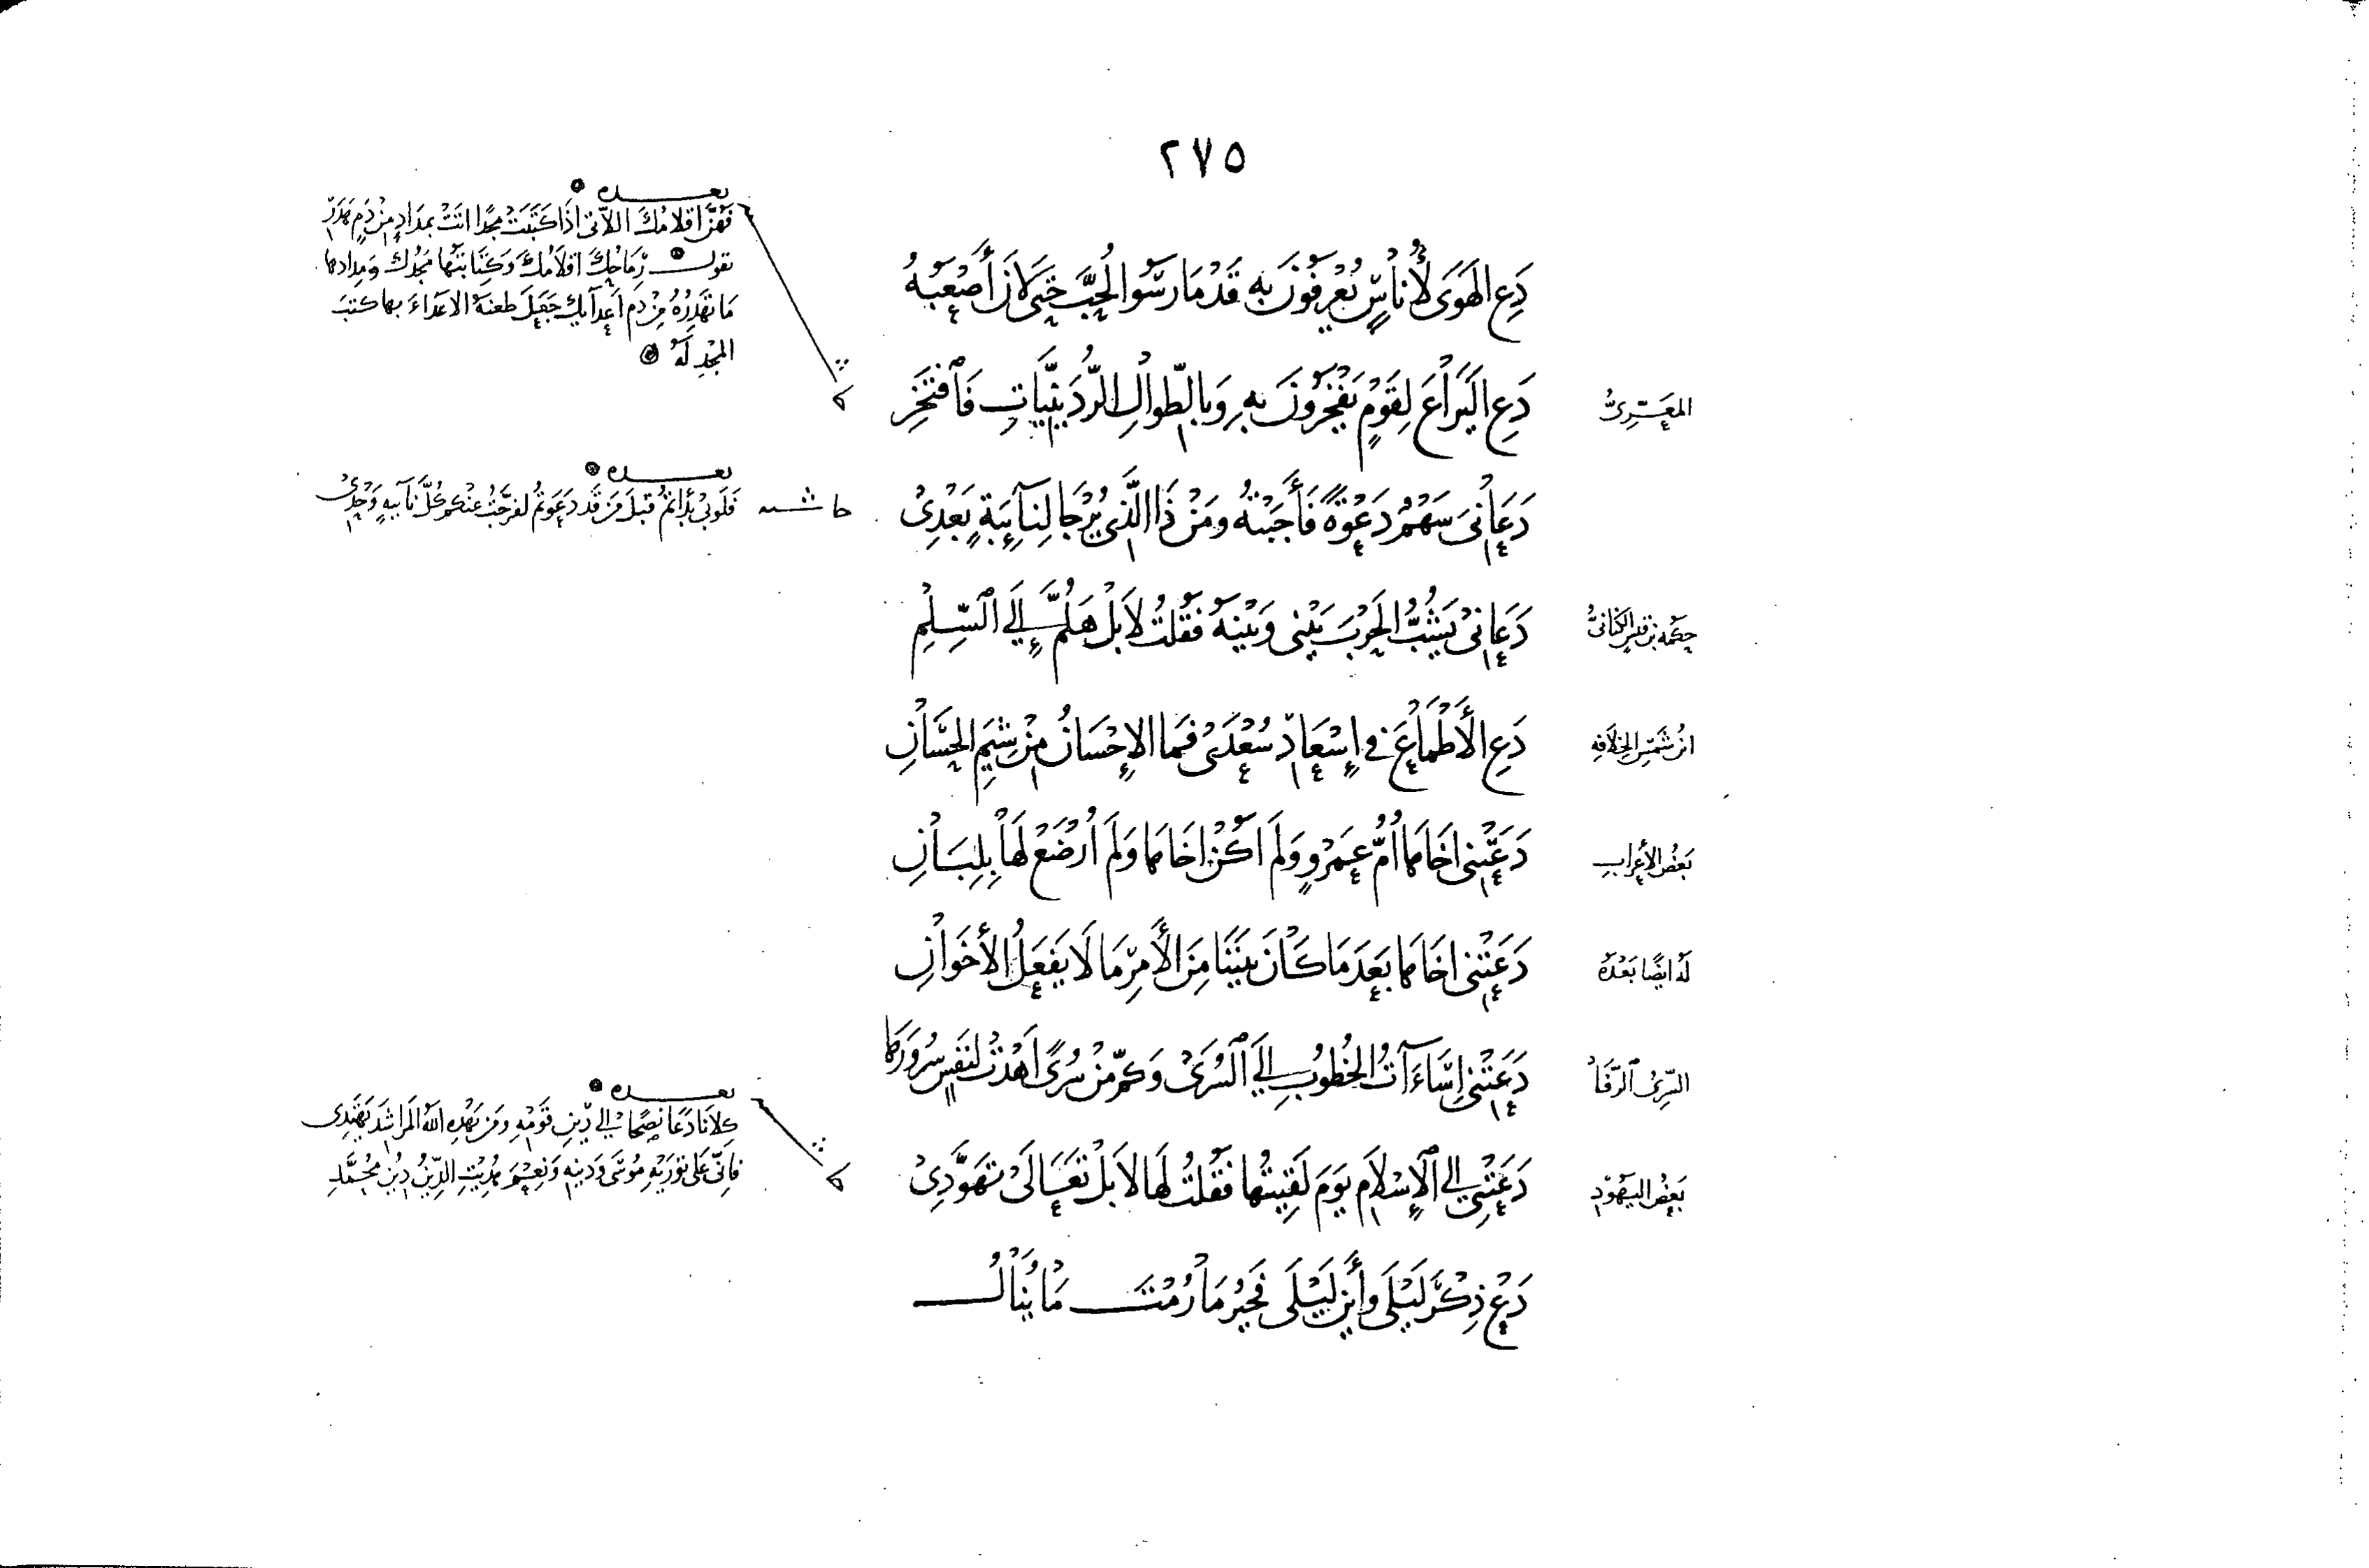 ٢٧٥
دَعِ الهَوَى لأُنَاسٍ يُعْرَفُونَ بِهِ قَدْ مَارَسُوا الحُبَّ حَتَّى لَانَ أَصْعَبُهُ
المعَرّيُّ
دَعِ اليَرَاعَ لِقَوْمٍ يَفْخَرُونَ بِهِ وَبِالطِّوالِ الرُّدَيْنِيَّاتِ فَافْتَخِرِ
بعده
فَهُنَّ أقلامُكَ اللّاتي إذَا كَتَبَتْ مَجْدًا أتَتْ بمِدَادٍ مِنْ دَمٍ هَدَرِ
تقول رِمَاحُكَ أقلَامُكَ وَكِتَابَتُهَا مَجْدُكَ وَمِدادها
مَا تُهْدِرُهُ مِنْ دَمِ أعدَآئِكَ جَعَلَ طعنَهُ الأعدَاءَ بها كتبَ
المَجْدِ لَهُ
دَعَانِيَ سَهْمٌ دَعْوَةً فَأَجَبْتُهُ ومَنْ ذَا الَّذي يُرْجَا لِنَآئِبَةٍ بَعْدِيْ
حاشيه
بعده
فَلَوبي بدأتمُ قبلَ مَن قَد دَعَوتمُ لفرَّجتُ عنكم كُلَّ نَآئبةٍ وَحْدِيْ
حكمه بن قيس الكنانيُّ
دَعَانِيْ يَشُبُّ الحَرْبَ بَيْني وَبَيْنَهُ فَقُلتُ لَا بَلْ هَلُمَّ إِلَى السِّلْمِ
ابْنُ شَمْسِ الخِلَافَةِ
دَعِ الأَطْمَاعَ في إِسْعَادِ سُعْدَىْ فَمَا الإحْسَانُ مِنْ شِيَمِ الحِسَانِ
بَعْضُ الأعرابِ
دَعَتْني أخَاهَا أُمُّ عَمْرٍو وَلَمْ أكُنْ أخَاهَا وَلَمْ أُرْضَعْ لَهَا بِلِبَانِ
لَهُ أيضًا بَعْدَهُ
دَعَتْني أخَاهَا بَعْدَ مَا كَانَ بَيْنَنَا مِنَ الأَمْرِ مَا لَا يَفْعَلُ الأَخَوَانِ
السَّرِيُّ الرَّفَا
دَعَتْني إِسَاءَآتُ الخُطُوبِ إِلَى السُّرَىْ وَكَمْ مِنْ سُرًى أَهْدَتْ لنَفْسٍ سُرُورَهَا
بَعْضُ اليَهُودِ
دَعَتْنِي إِلى الإِسْلَامِ يَوْمَ لَقِيتُهَا فَقُلتُ لَهَا لَا بَلْ تَعَالَىْ تَهَوَّدِيْ
بعده
كِلَانَا دَعَا نصحًا إلى دِينِ قَوْمِهِ ومَن يَهْدِهِ اللهُ المَرَاشِدَ يَهْتَدِي
فَإنّي عَلى تَوْرَيةِ مُوسَى وَدينِهِ وَنِعْمَ لَدِيْتِ الدِّينُ دِينُ مُحَمَّدِ
دَعْ ذِكْرَ لَيْلَى وأَيْنَ لَيْلَى فَخَيْرُ مَا رُمْتَ مَا يُنَالُ